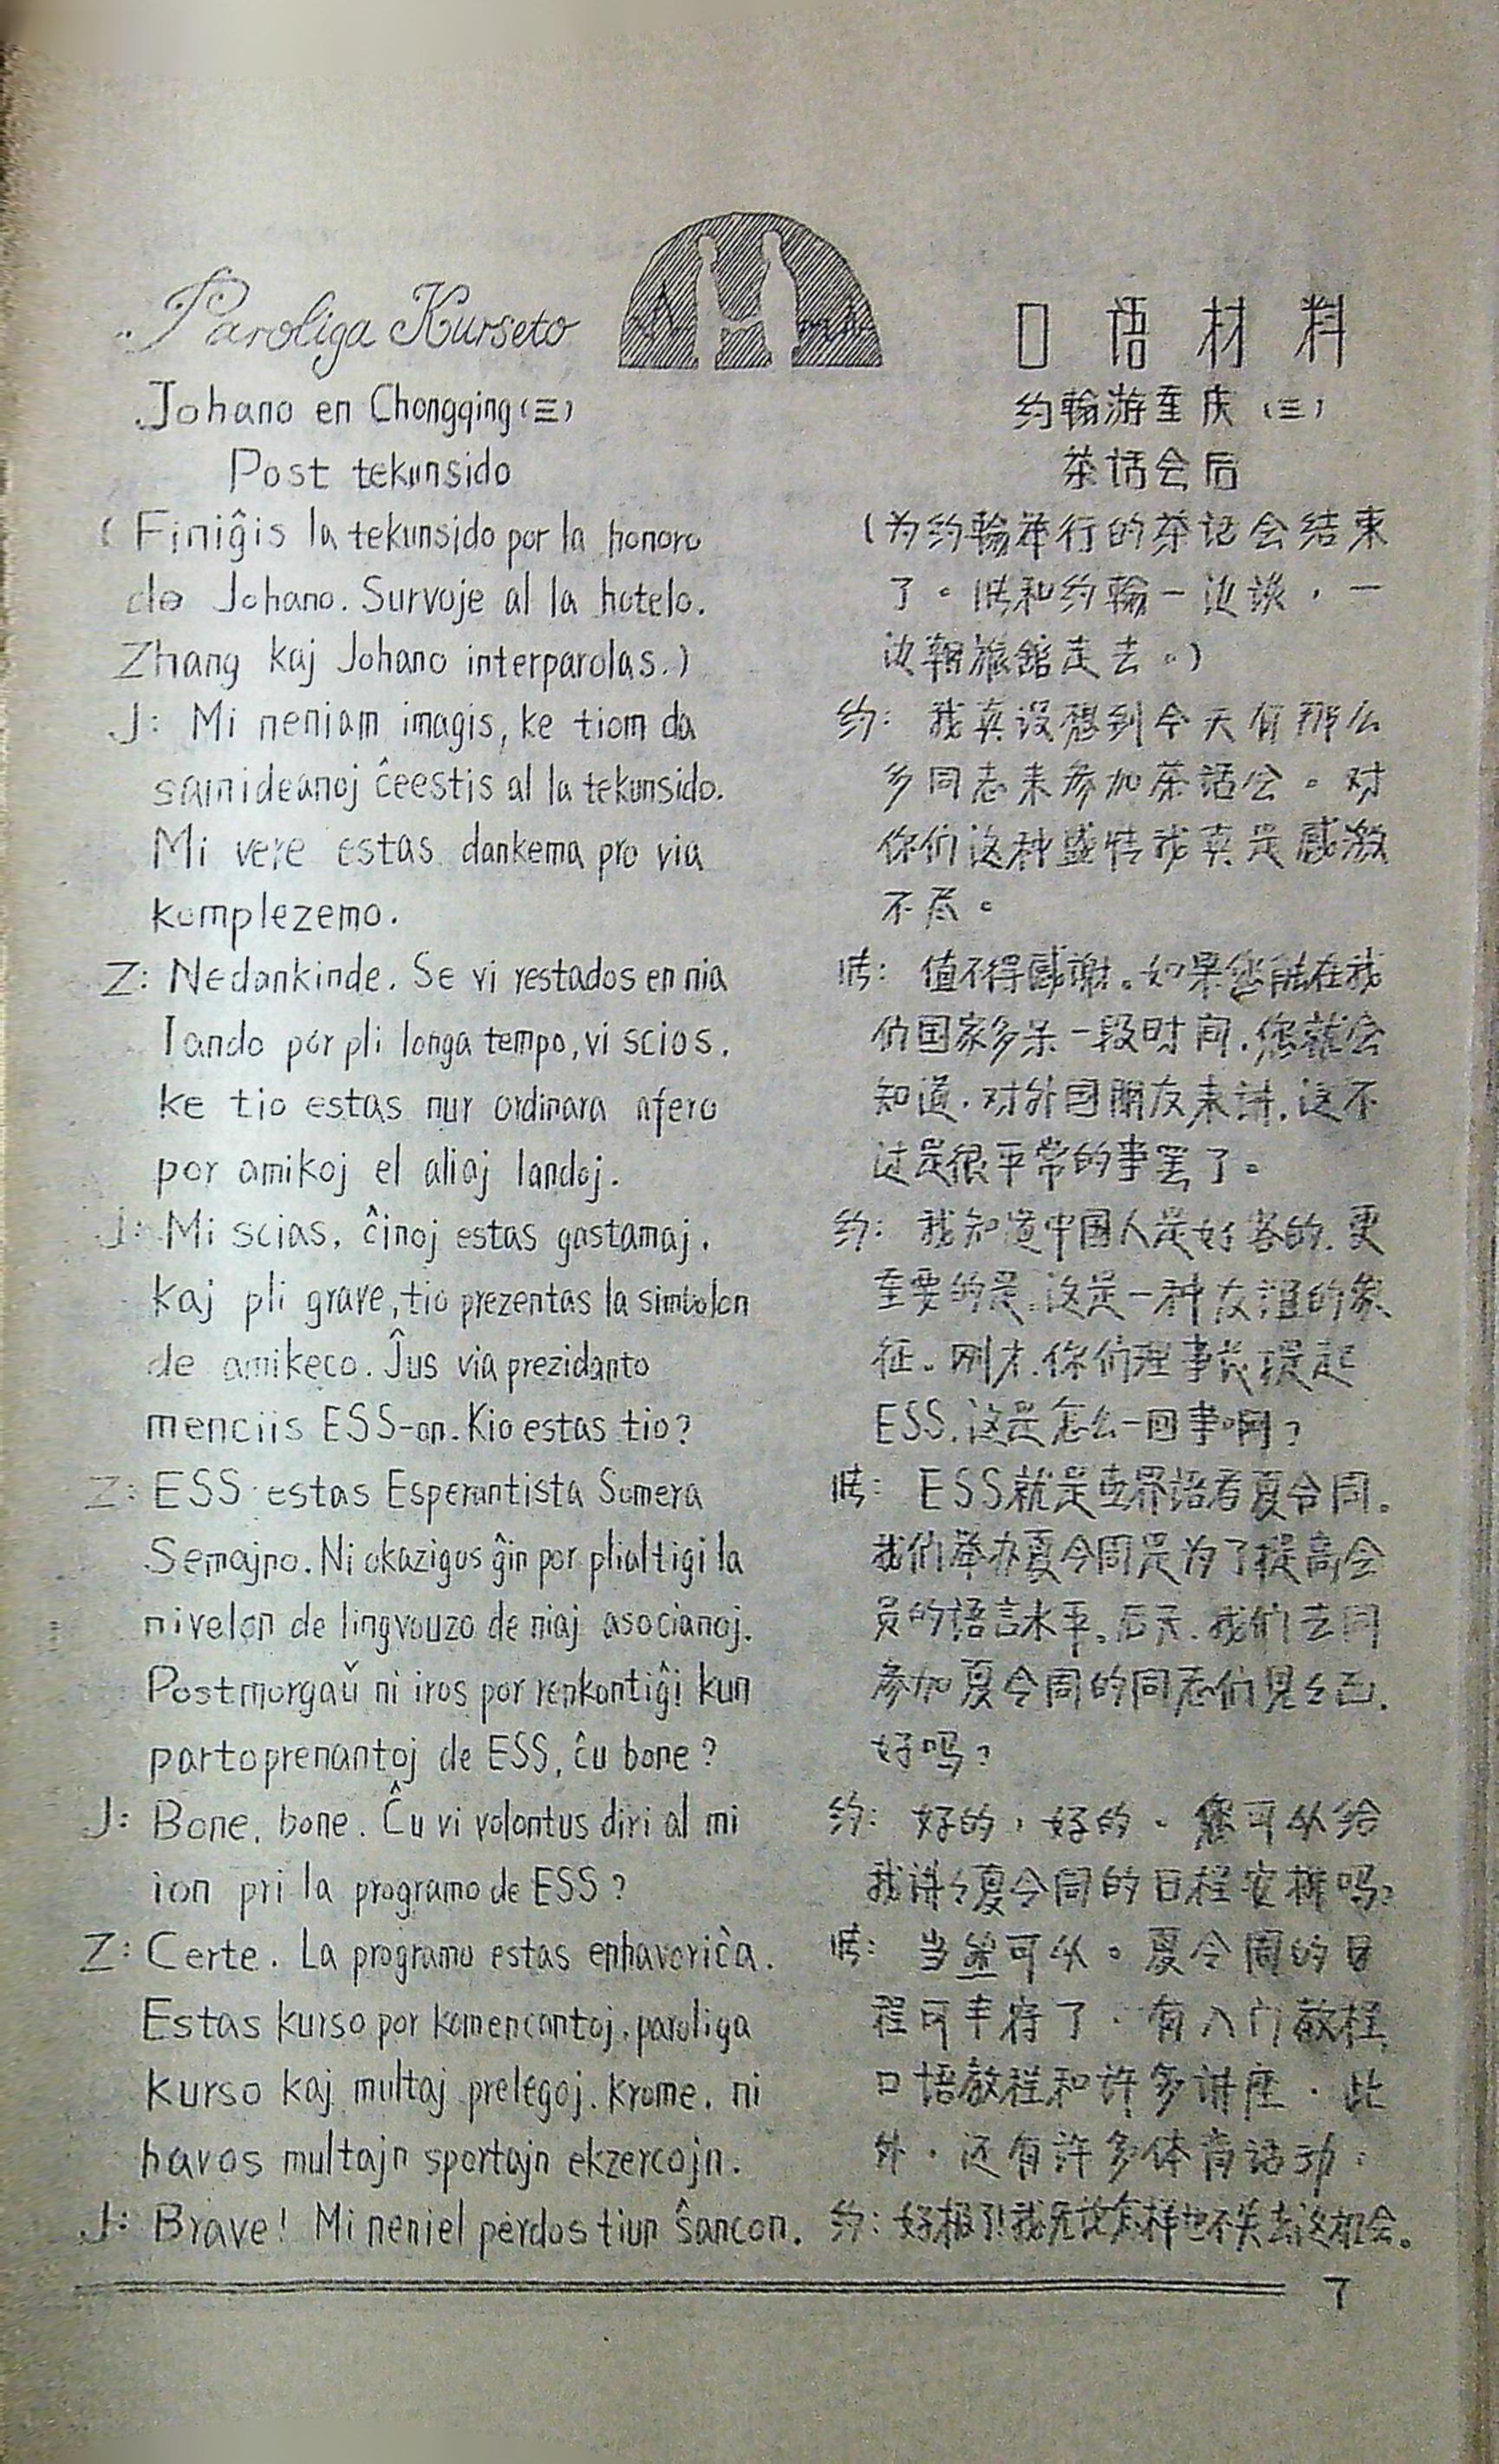 Paroliga Kurseto
Johano en Chongqing (三)
Post tekunsido
(Finiĝis la tekunsido por la honoro
de Johano. Survoje al la hotelo.
Zhang kaj Johano interparolas.)
J: Mi neniam imagis, ke tiom da
samideanoj ĉeestis al la tekunsido.
Mi vere estas dankema pro via
komplezemo.
Z: Nedankinde. Se vi restados en nia
lando por pli longa tempo, vi scios,
ke tio estas nur ordinara afero
por amikoj el aliaj landoj.
J: Mi scias, ĉinoj estas gastamaj,
kaj pli grave, tio prezentas la simbolon
de amikeco. Ĵus via prezidanto
menciis ESS-on. Kio estas tio?
Z: ESS estas Esperantista Somera
Semajno. Ni okazigos ĝin por plialtigi la
nivelon de lingvouzo de niaj asocianoj.
Postmorgaŭ ni iros por renkontiĝi kun
partoprenantoj de ESS, ĉu bone?
J: Bone, bone. Ĉu vi volontus diri al mi
ion pri la programo de ESS?
Z: Certe. La programo estas enhavoriĉa.
Estas kurso por komencantoj, paroliga
kurso kaj multaj prelegoj. Krome, ni
havos multajn sportajn ekzercojn.
J: Brave! Mi neniel perdos tiun ŝancon.
口语材料
约翰游重庆(三)
茶话会后
(为约翰举行的茶话会结束
了。张和约翰一边谈,一
边朝旅館走去。)
约: 我真没想到今天有那么
多同志来参加茶话会。对
你们这种盛情我真是感激
不尽。
张: 值不得感谢。如果您能在我
们国家多呆一段时间,您就会
知道,对外国朋友来讲,这不
过是很平常的事罢了。
约: 我知道中国人是好客的,更
重要的是,这是一种友谊的象
征。刚才,你们理事长提起
ESS,这是怎么一回事啊?
张: ESS就是世界语者夏令周。
我们举办夏令周是为了提高会
员的语言水平。后天,我们去同
参加夏令周的同志们见々面,
好吗?
约: 好的,好的。您可以给
我讲々夏令周的日程安排吗?
张: 当然可以。夏令周的日
程可丰富了,有入门教程,
口语教程和许多讲座,此
外,还有许多体育活动。
约: 好极了!我无论怎样也不失去这机会。
7